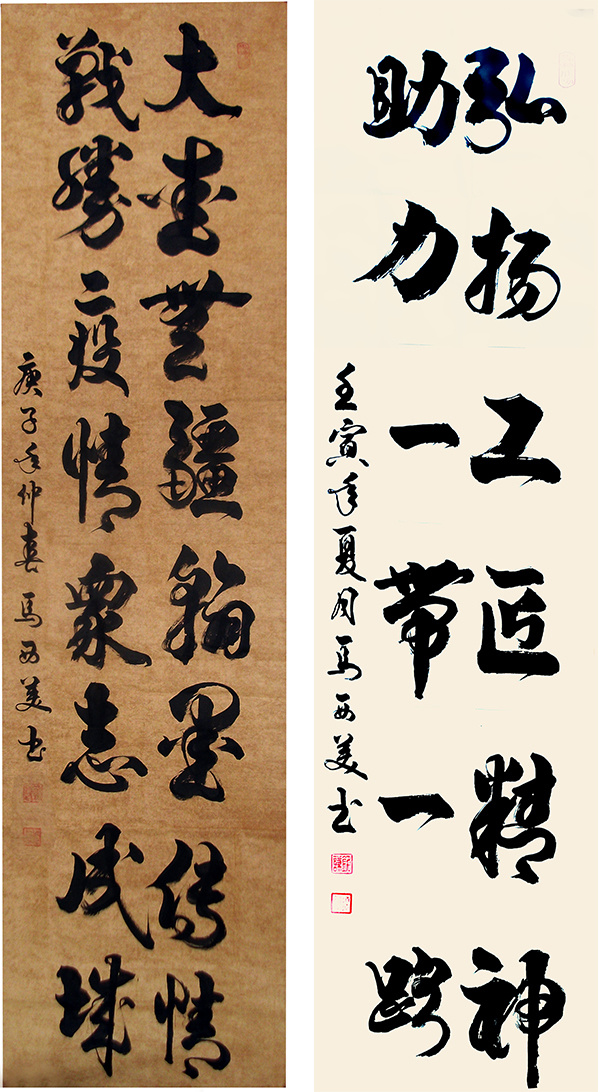 大愛無疆翰墨傳情
戰勝疫情衆志成城
庚子年仲春馬西美书
弘扬工匠精神
助力一带一路
壬寅年夏月馬西美书